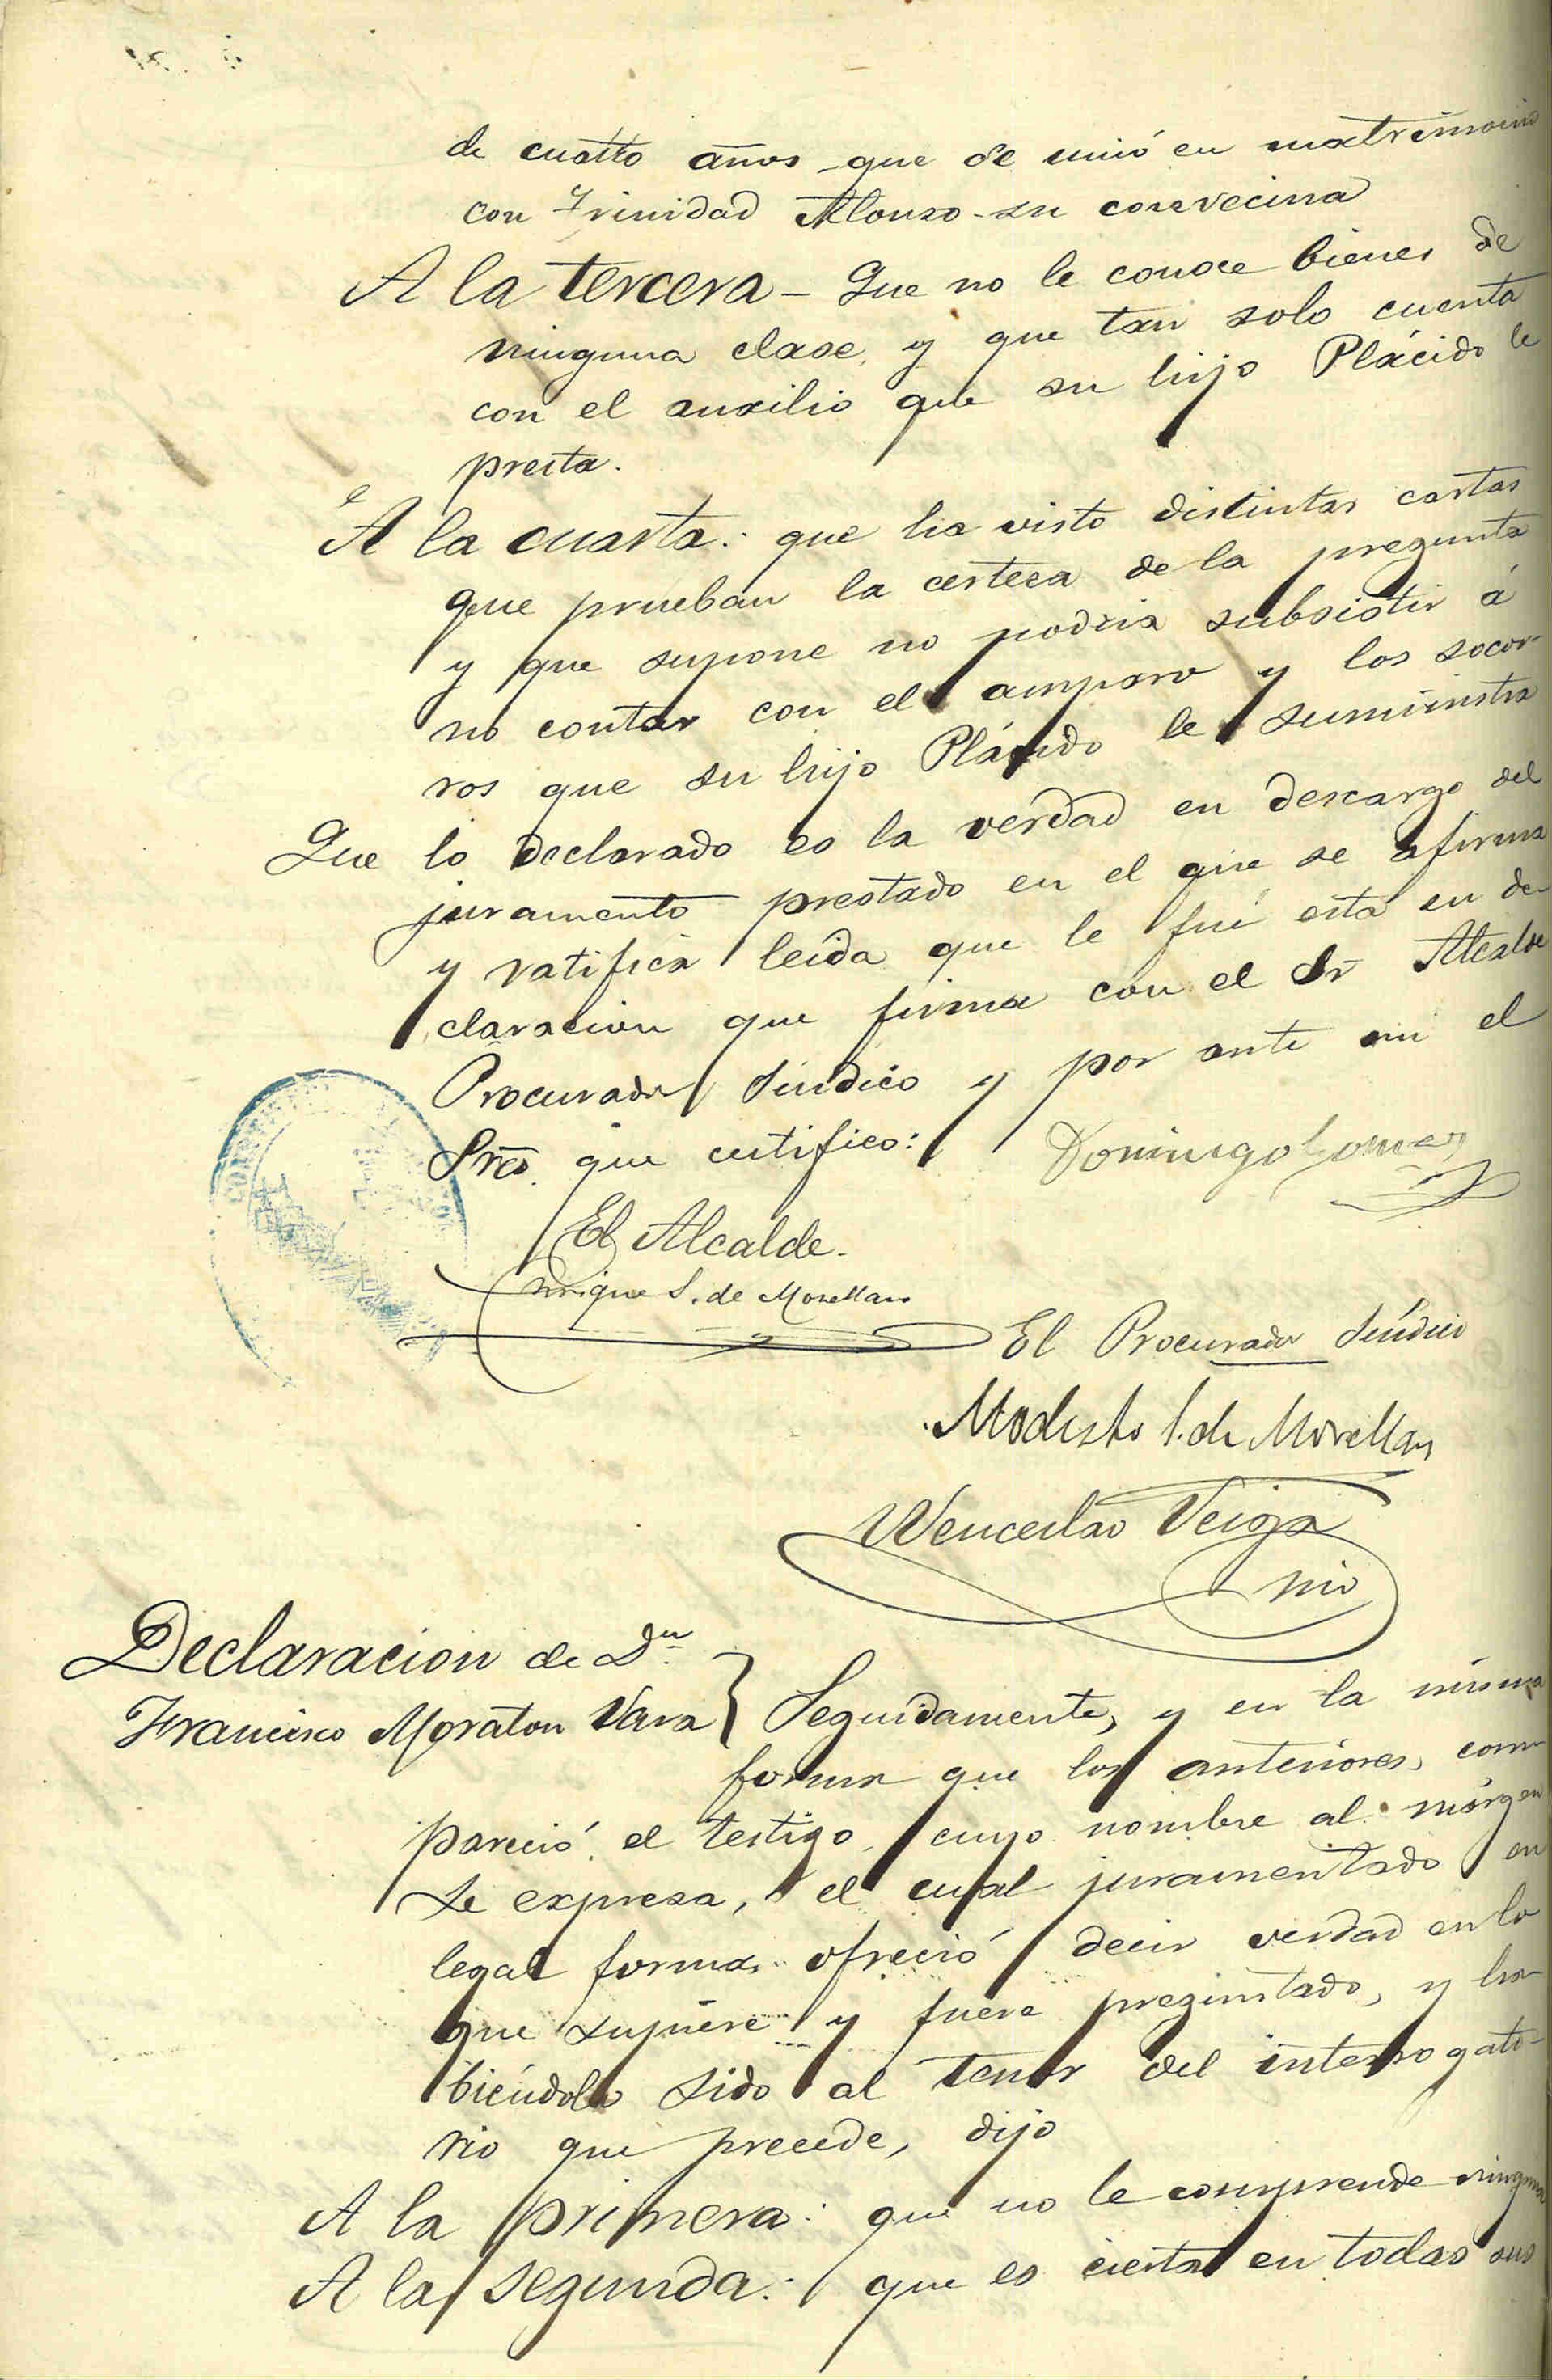 de cuatro años que se unió en matrimonio
con Trinidad Alonso su convecina
A la tercera - Que no le conoce bienes de
ninguna clase, y que tan solo cuenta
con el auxilio que su hijo Plácido le
presta.
A la cuarta: que ha visto distintas cartas
que prueban la certeza de la pregunta
y que supone no podria subsistir á
no contar con el amparo y los socor-
ros que su hijo Plácido le suministra
Que lo declarado es la verdad en descargo del
juramento prestado en el que se afirma
y ratifica leida que le fué esta su de-
claracion que firma con el Sr Alcalde
Procurador Síndico y por ante mi el
Srio. que certifico:
Domingo Gomez
El Alcalde.
Enrique S. de Morellan
El Procurador Síndico
Modesto S. de Morellan
Wenceslao Veiga
srio
Declaracion de Dn.
Francisco Moraton Vara } Seguidamente, y en la misma
forma que los anteriores, com-
pareció el testigo, cuyo nombre al márgen
se expresa, el cual juramentado en
legal forma ofreció decir verdad en lo
que supiere y fuere preguntado, y ha-
biéndolo sido al tenor del interrogato-
rio que precede, dijo
A la primera: que no le comprende ninguna
A la segunda: que es cierta en todas sus